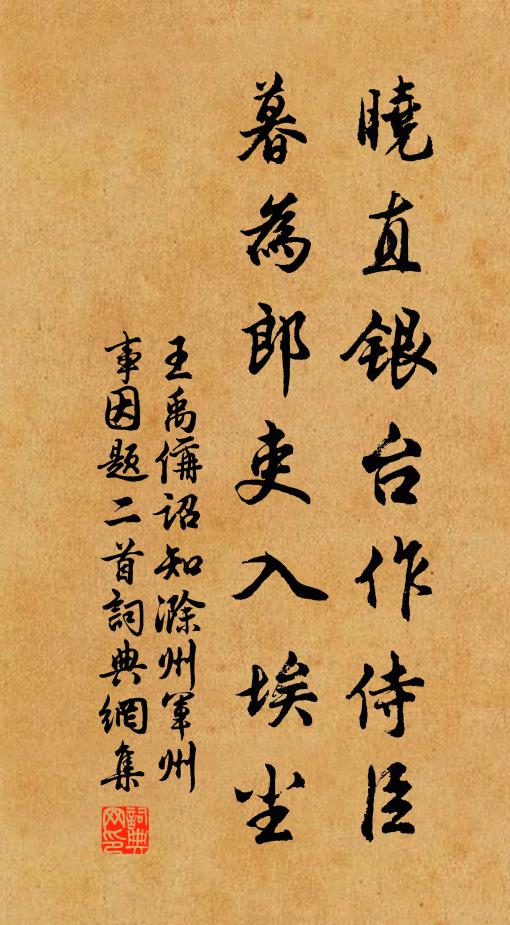 曉直銀台作侍臣
暮為郎吏入埃尘
王禹偁詔知滁州軍州
事因題二首詞典網集
詞典
网印